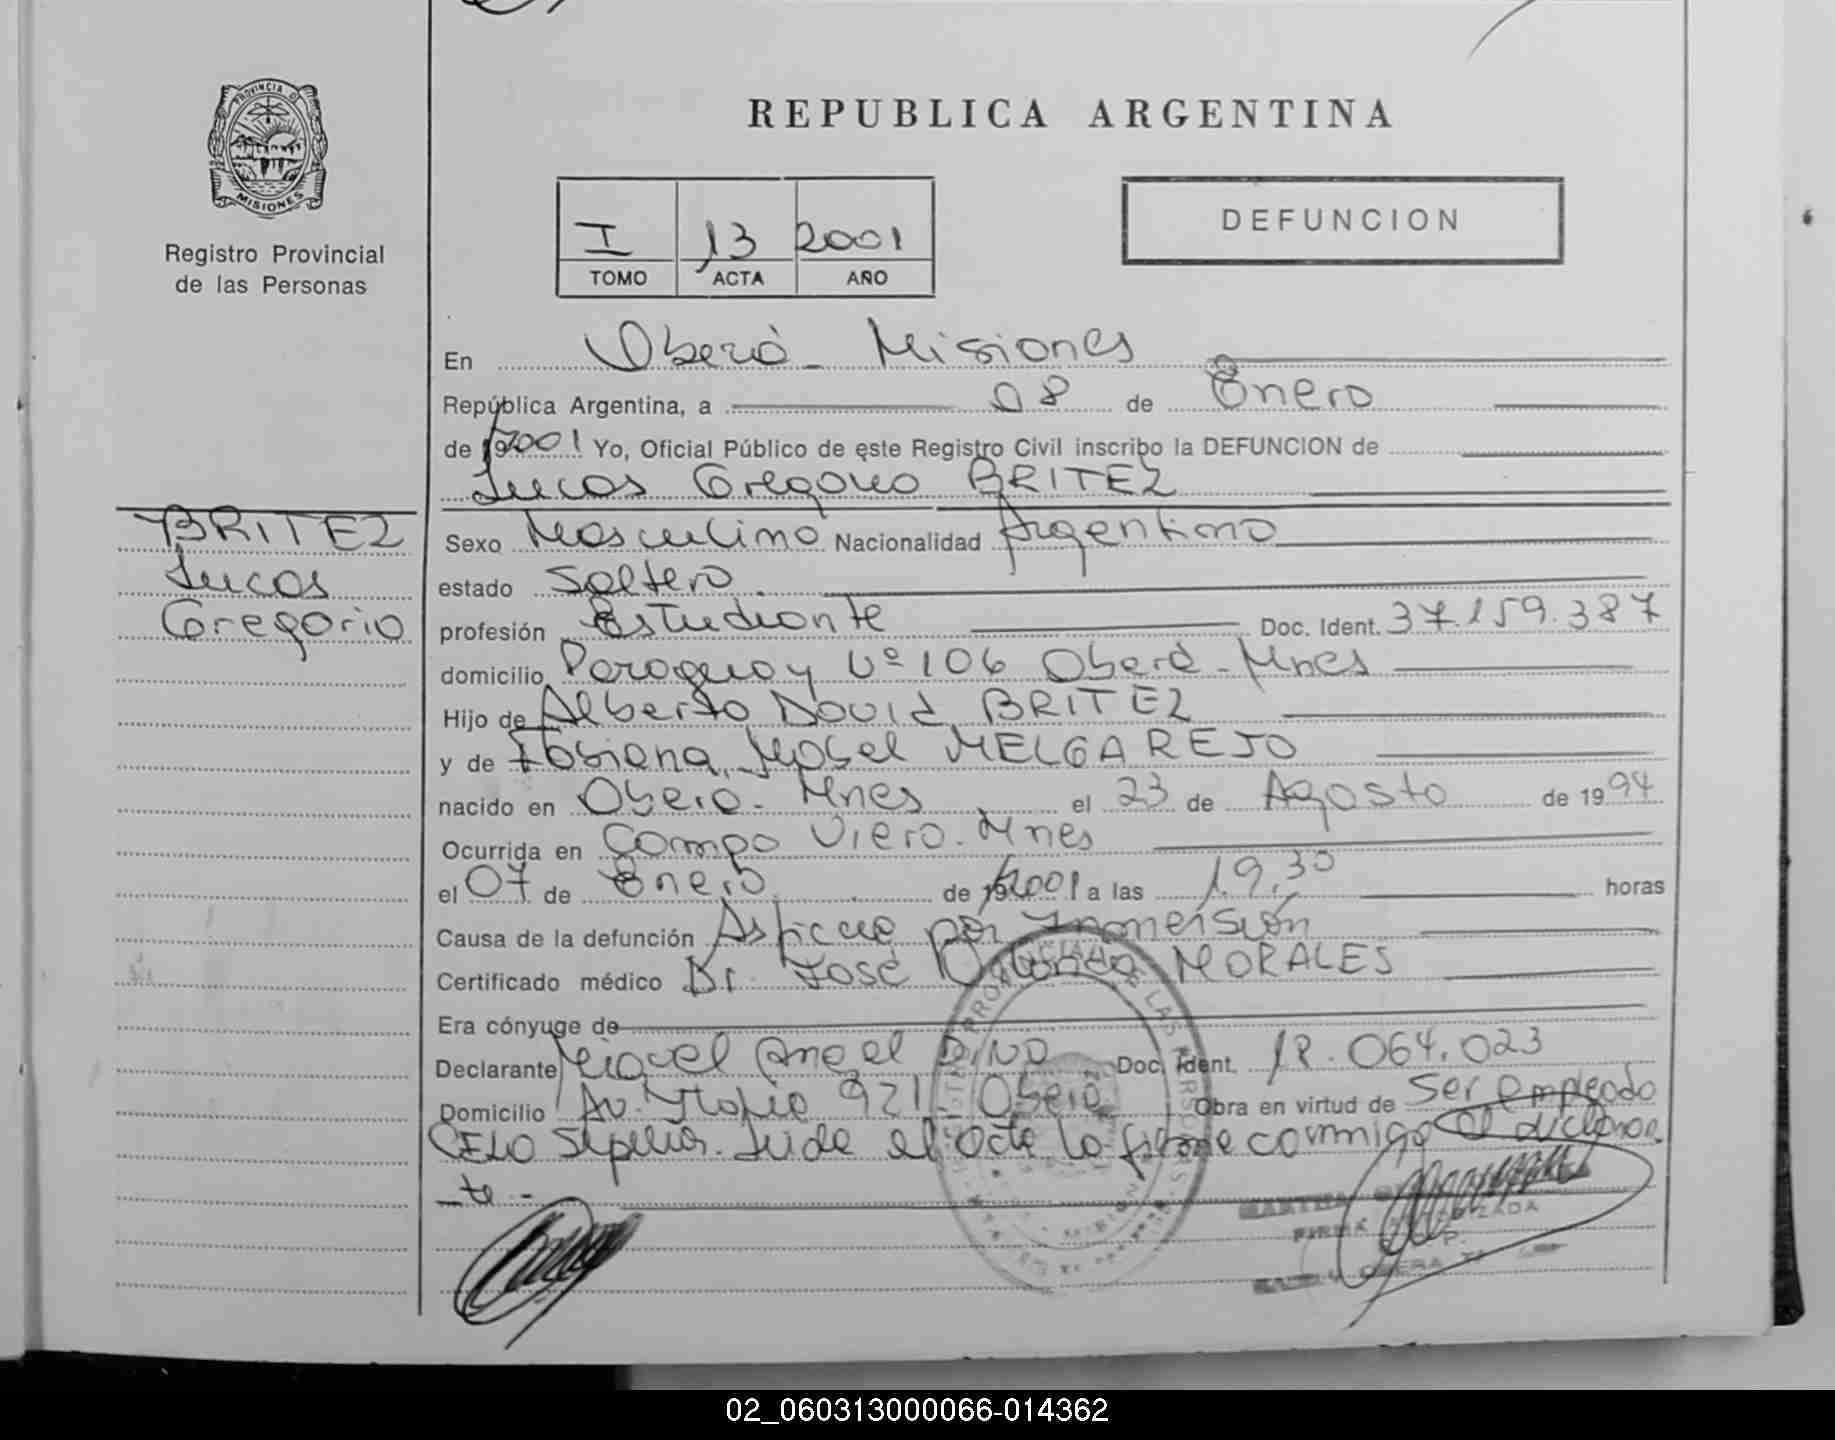 PROVINCIA DE
MISIONES
Registro Provincial
de las Personas
REPUBLICA ARGENTINA
I 13 2001
TOMO ACTA AÑO
DEFUNCION
En Oberá - Misiones
República Argentina, a 08 de Enero
de 192001 Yo, Oficial Público de este Registro Civil inscribo la DEFUNCION de
Lucas Gregorio BRITEZ
BRITEZ
Lucas
Gregorio
Sexo Masculino Nacionalidad Argentino
estado Soltero.
profesión Estudiante Doc. Ident. 37.159.387
domicilio Paraguay Nº 106 Oberá - Mnes
Hijo de Alberto David BRITEZ
y de Fabiana Mabel MELGAREJO
nacido en Oberá - Mnes el 23 de Agosto de 1994
Ocurrida en Campo Viera - Mnes
el 07 de Enero de 192001 a las 19,30 horas
Causa de la defunción Asficcia por Inmersión
Certificado médico Dr. José MORALES
Era cónyuge de
Declarante Miguel Angel Doc. Ident. 18.064.023
Domicilio Av. Italia 921 - Oberá Obra en virtud de ser empleado
CELO Sepelios. Leída el acta la firma conmigo el declaran
-te.-
FIRMA AUTORIZADA
02_060313000066-014362